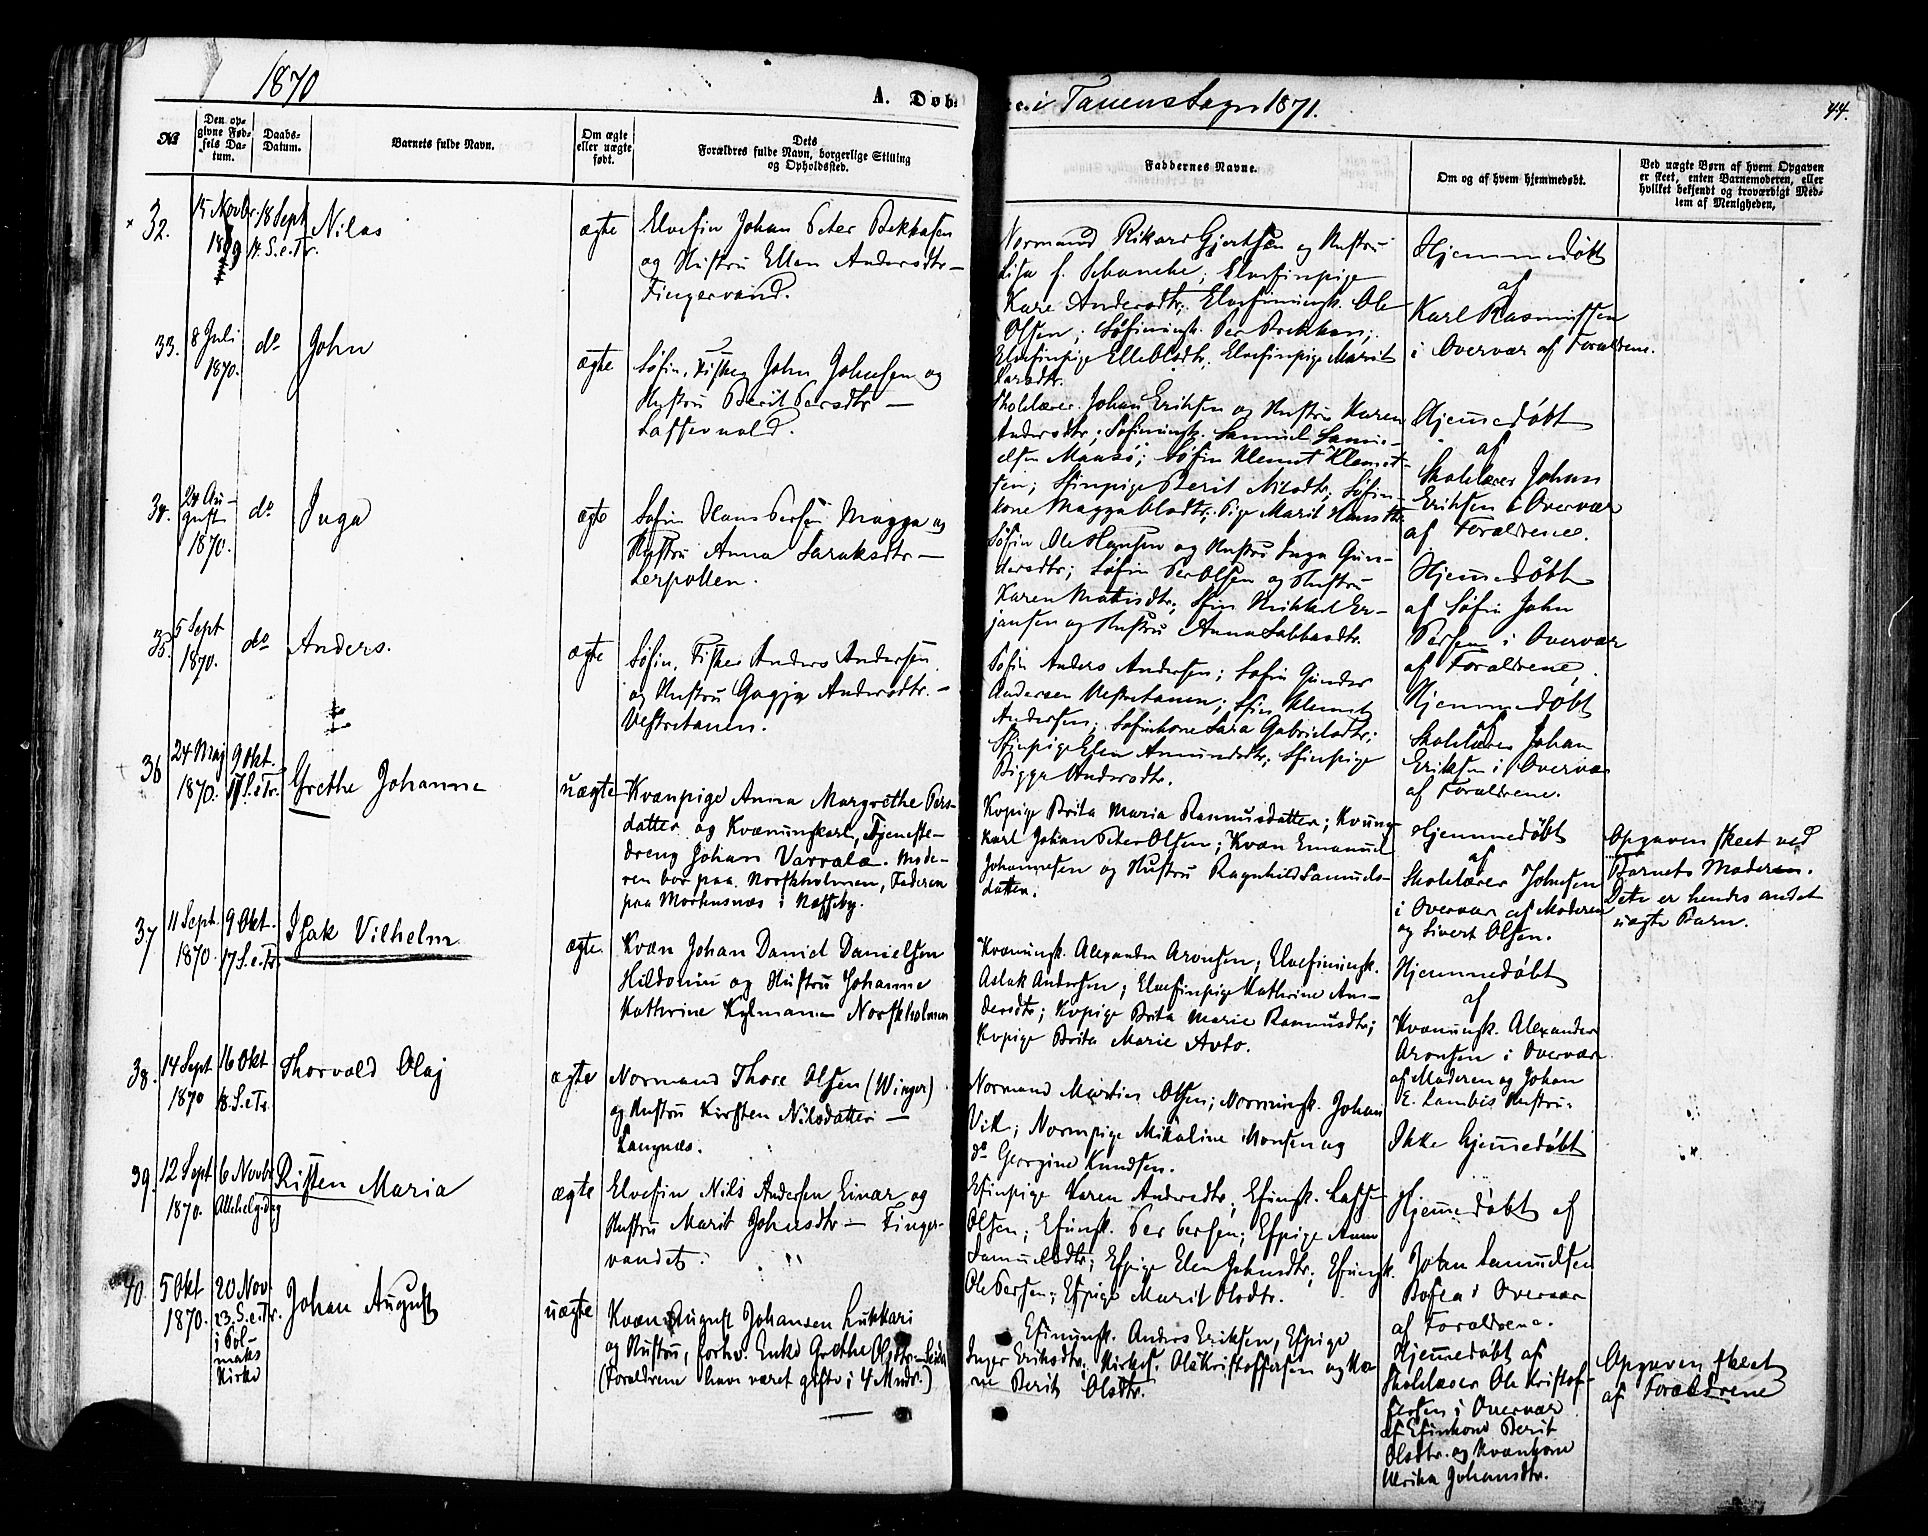 1870
A. Døb
i Tanens Sogn 1871.
44.
No
Den op-
givne Fød-
sels Da-
tum.
Daabs-
Datum.
Barnets fulde Navn.
Om ægte
eller uægte
født.
Dets
Forældres fulde Navn, borgerlige Stilling
og Opholdssted.
Faddernes Navne.
Om og af hvem hjemmedøbt.
Ved uægte Børn af hvem Opgaven
er skeet, enten Barnemoderen, eller
hvilket bekjendt og troværdigt Med-
lem af Menigheden.
32.
15 Novbr
1869
18 Sept
14. S. e. Tr.
Nilas
ægte
Elvefin Johan Peter
og Hustru Ellen Andersdtr –
Fingervand.
Normand Rikard Gjertsen og Hustru
Lisa f. Schanche; Elvefinpige
Kare Andersdtr; Elvefinungk. Ole
Olsen; Søfinungk. Per
Elvefinpige Elleblodtr, Elvefinpige Marit
Larsdtr.
Hjemmedøbt
af
Karl Rasmussen
i Overvær af Forældrene.
33.
8 Juli
1870.
do
John
ægte
Søfin, Fisker John Johnsen og
Hustru Berit Persdtr –
Skolelærer Johan Eriksen og Hustru Karen
Andersdtr; Søfinungk. Samuel Samu-
elsen Maasø; Søfin Klemet Klemet-
sen; Sfinpige Berit Nilsdtr, Søfin-
kone Magga Olsdtr; Pige Marit Hansdtr
Hjemmedøbt
af
Skolelærer Johan
Eriksen i Overvær
af Forældrene.
34.
24 Au-
gust
1870.
do
Inga
ægte
Søfin Hans Persen Magga og
Hustru Anna Saraksdtr –
Lerpollen.
Søfin Ole Hansen og Hustru Inga Gun-
dersdtr; Søfin Per Olsen og Hustru
Karen Mattisdtr; Sfin Mikkel Er-
jansen og Hustru Anna Sabbasdtr
Hjemmedøbt
af Søfin John
Persen i Overvær
af Forældrene,
35.
5 Sept
1870.
do
Anders.
ægte
Søfin, Fisker Anders Andersen
og Hustru Gagja Andersdtr. –
Vestretanen.
Søfin Anders Andersen; Søfin Gunder
Andersen Vestretanen; Sfin Klemet
Andersen; Søfinkone Sara Gabrielsdtr;
Sfinpige Elen Amundsdtr; Sfinpige
Bigga Andersdtr.
Hjemmedøbt
af
Skolelærer Johan
Eriksen i Overvær
af Forældrene.
36
24 Maj
1870.
9 Okt.
17 S. e. Tr.
Grethe Johanne
uægte
Kvænpige Anna Margrethe Pers-
datter og Kvænungkarl, Tjeneste-
dreng Johan Varrala. Mode-
ren bor paa Norskholmen, Faderen
paa Mortensnæs i Næsseby.
Kvpige Brita Maria Rasmusdatter; Kvung-
karl Johan Peter Olsen; Kvæn Emanuel
Johannesen og Hustru Ragnhild Samuels-
datter.
Hjemmedøbt
af
Skolelærer Johnsen
i Overvær af Moderen
og Sivert Olsen.
Opgaven skeet ved
Barnets Moderen.
Dete er hendes andet
uægte Barn.
37
11 Sept.
1870.
9 Okt.
17 S. e. Tr.
Isak Vilhelm
ægte.
Kvæn Johan Daniel Danielsen
Hildonini og Hustru Johanne
Kathrine Kylmanen Norskholmen
Kvænungk. Alexander Aronsen; Elvefinungk.
Aslak Andersen; Elvefinpige Kathrine An-
dersdtr; Kvpige Brita Marie Rasmusdtr;
Kvpige Brita Marie Avto.
Hjemmedøbt
af
Kvænungk. Alexander
Aronsen i Overvær
af Moderen og Johan
E. Lambis Hustru.
38.
14 Sept
1870
16 Okt
18. S. e. Tr.
Thorvald Olaj
ægte
Normand Thore Olsen (Winger)
og Hustru Kirsten Nilsdatter –
Langnæs.
Normand Morten Olsen; Normungk. Johan
Vik; Normpige Mikaline Monsen og
do Georgine Knudsen.
Ikke hjemmedøbt
39.
12 Sept
1870.
6 Novbr
Allehelgdag
Risten Maria
ægte
Elvefin Nils Andersen Einar og
Hustru Marit Johnsdtr – Finger-
vandet.
Efinpige Karen Andersdtr; Efinungk. Lasse
Olsen; Efinungk. Per Persen; Efpige Anna
Samuelsdtr; Efpige Elen Johnsdtr; Efinungk.
Ole Persen; Efpige Marit Olsdtr.
Hjemmedøbt af
Johan Samuelsen
Bosen i Overvær
af Forældrene.
40.
5 Okt
1870.
20 Nov
23. S. e. Tr.
i Pol-
maks
Kirke
Johan August
uægte
Kvæn August Johansen Lukkari
og Hustru, forhv. Enke Grethe Olsdtr –
(Forældrene have været gifte i 4 Mndr.)
Efinungk. Anders Eriksen, Efpige
Inger Eriksdtr; Kirkes. Ole Kristoffersen og Ko-
ne Berit Olsdtr.
Hjemmedøbt af
Skolelærer Ole Kristof-
fersen i Overvær
af Efinkone Berit
Olsdtr. og Kvænkone
Ulrika Johansdtr.
Opgaven skeet
af Forældrene